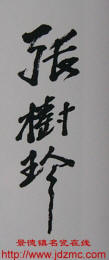 张树玲
景德镇名瓷在线
http://www.jdzmc.com